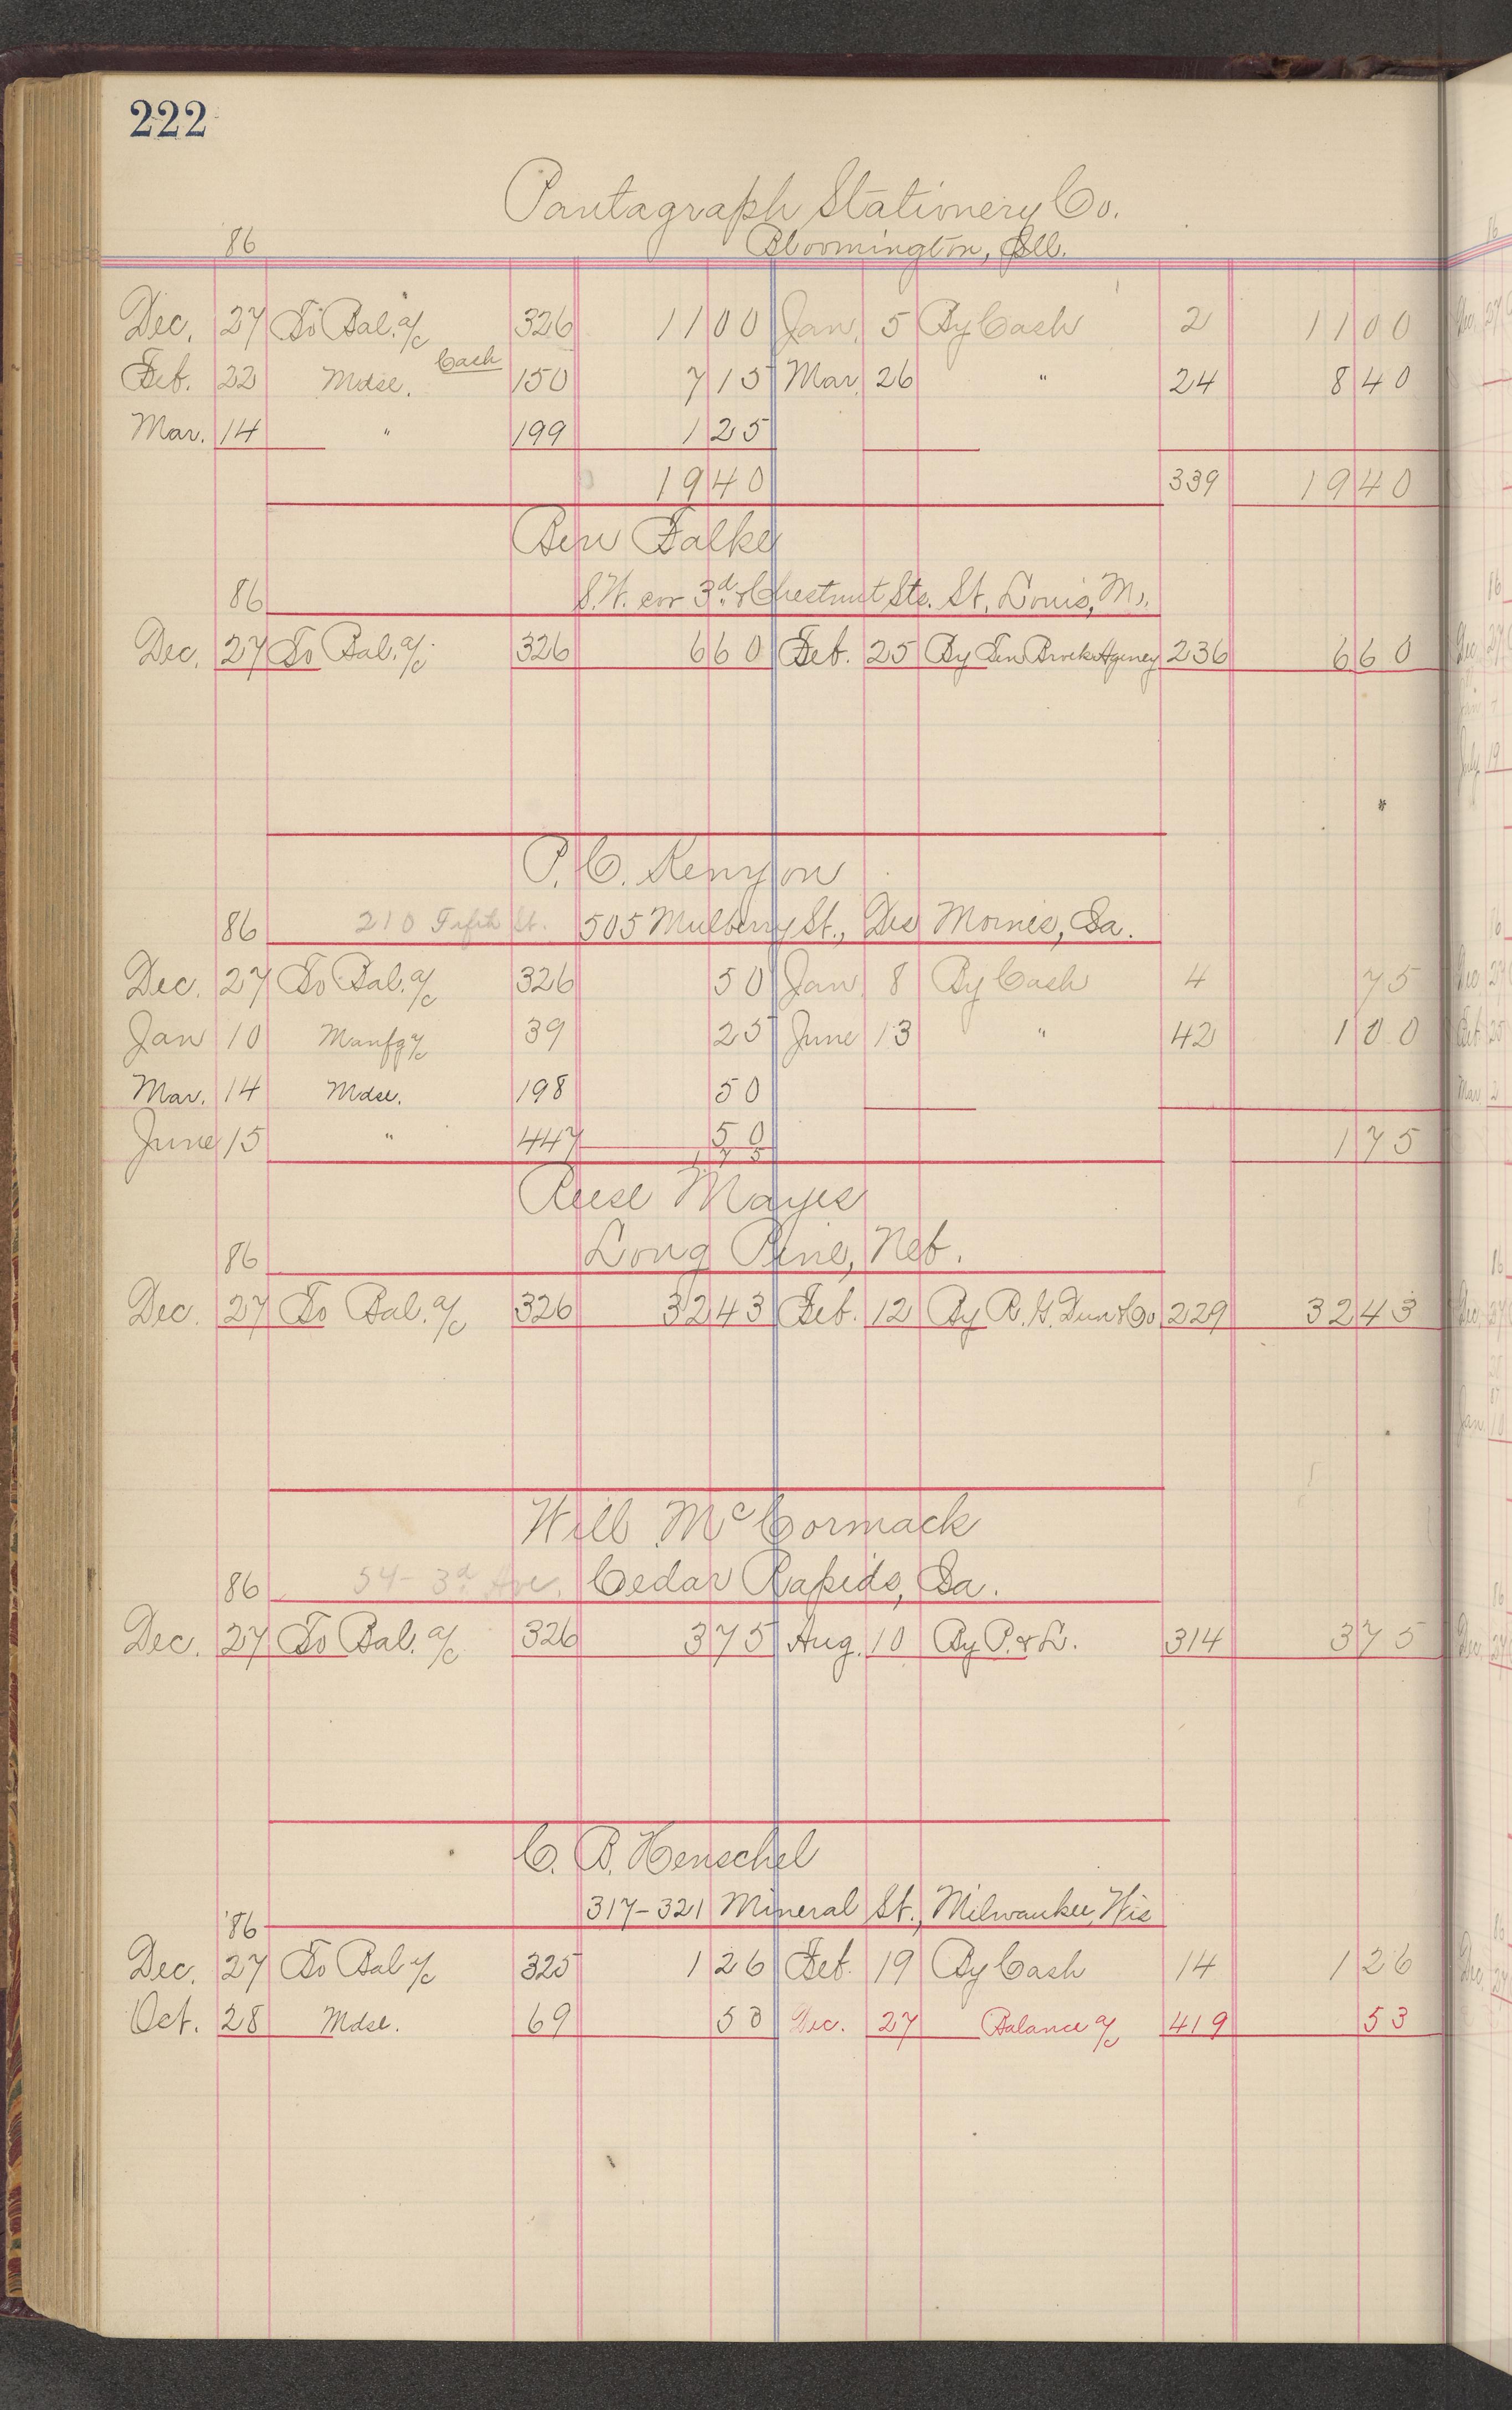 222
Pantagraph Stationery Co.
86 Bloomington, Ill.
Dec. 27 To Bal. a/c 326 11 00 Jan. 5 By Cash 2 11 00
Feb. 22 Mdse. Cash 150 7 15 Mar. 26 " 24 8 40
Mar. 14 " 199 1 25
19 40 339 19 40
Ben Falke
86 S.W. cor 3d & Chestnut Sts. St. Louis, Mo.
Dec. 27 To Bal. a/c 326 6 60 Feb. 25 By Ten Broek Agency 236 6 60
P. C. Kenyon
86 210 Fifth St. 505 Mulberry St., Des Moines, Ia.
Dec. 27 To Bal. a/c 326 50 Jan. 8 By Cash 4 75
Jan 10 Manfg a/c 39 25 June 13 " 42 1 00
Mar. 14 Mdse. 198 50
June 15 " 447 50 1 75
1 75
Reese Mayes
86 Long Pine, Neb.
Dec. 27 To Bal. a/c 326 32 43 Feb. 12 By R. G. Dun & Co 229 32 43
Will McCormack
86 54 - 3d Ave. Cedar Rapids, Ia.
Dec. 27 To Bal. a/c 326 3 75 Aug. 10 By P. & L. 314 3 75
C. B. Henschel
'86 317-321 Mineral St., Milwaukee, Wis
Dec. 27 To Bal a/c 325 1 26 Feb. 19 By Cash 14 1 26
Oct. 28 Mdse. 69 53 Dec. 27 Balance a/c 419 53